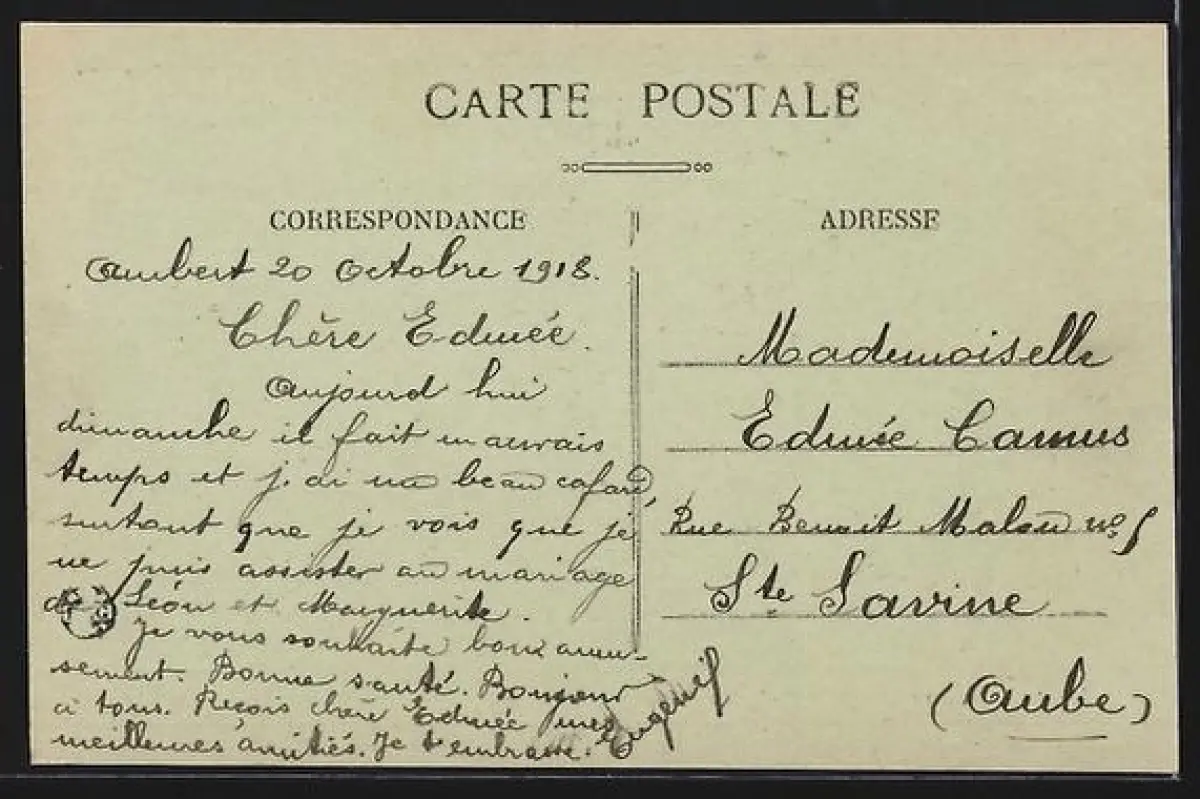 CARTE POSTALE
CORRESPONDANCE
Ambert 20 Octobre 1918.
Chère Edmée.
Aujourd hui
dimanche il fait mauvais
temps et j'ai un beau cafard,
surtout que je vois que je
ne puis assister au mariage
de Léon et Marguerite.
Je vous souhaite bon amu-
sement. Bonne santé. Bonjour
à tous. Reçois chère Edmée mes
meilleures amitiés. Je t'embrasse.
ADRESSE
Mademoiselle
Edmée Camus
Rue Benoit Malon no 5
Ste Savine
(Aube)